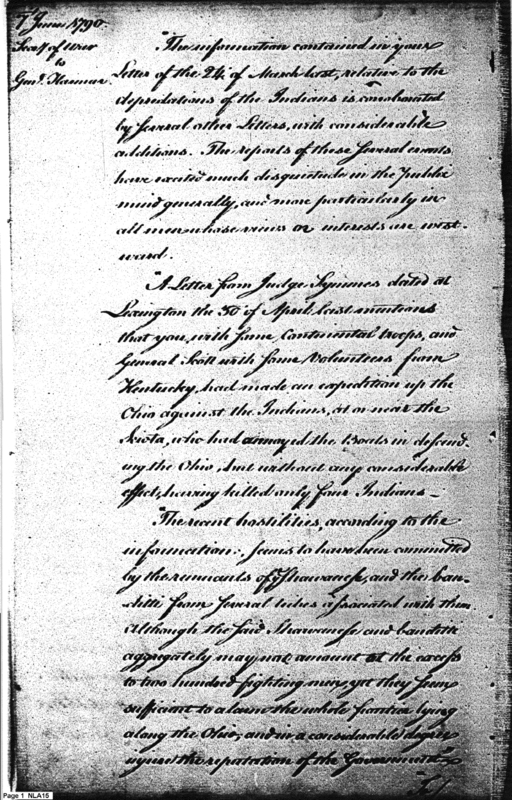 7th June 1790.
Secy of War
to
Genl. Harmar.
"The information contained in your
Letter of the 24th of March last, relative to the
depredations of the Indians is corroborated
by several other Letters, with considerable
additions. The reports of these several events
have excited much disquietude in the public
mind generally, and more particularly in
all men whose views or interests are west-
ward.
"A Letter from Judge Symmes dated at
Lexington the 30th of April last mentions
that you, with some Continental troops, and
General Scott with some Volunteers from
Kentucky, had made an expedition up the
Ohio against the Indians, at or near the
Sciota, who had annoyed the Boats in descend-
ing the Ohio, but without any considerable
effect, having killed only four Indians—
"The recent hostilities, according to the
information, seems to have been committed
by the remnants of the Shawanese, and the ban-
ditti from several tribes associated with them.
Although the said Shawanese and banditti
aggregately may not amount at the excess
to two hundred fighting men, yet they seem
sufficient to alarm the whole frontier lying
along the Ohio, and in a considerable degree
injure the reputation of the Government."
Page 1 NLA15